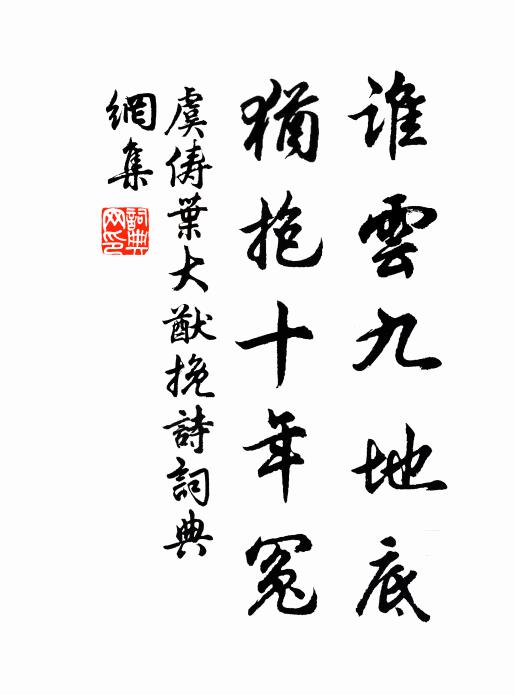 誰雲九地底
猶抱十年冤
虞儔葉大猷挽詩詞典
網集
詞典
网印